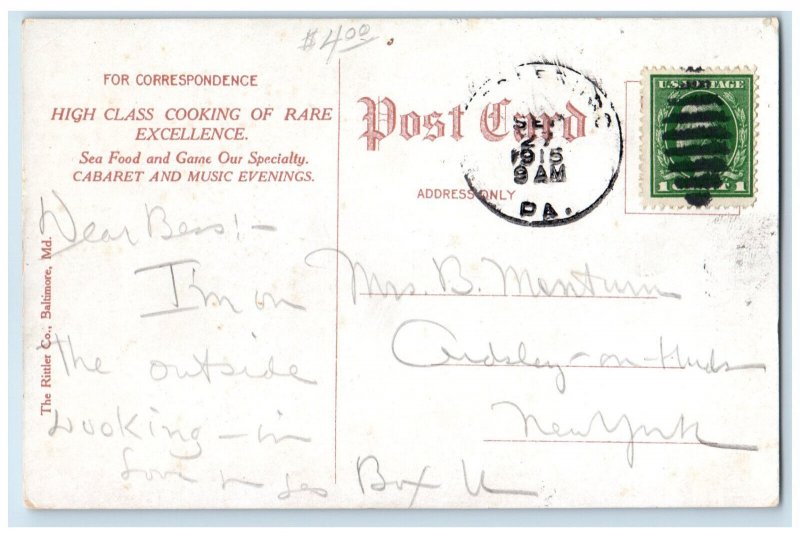 $4.00
FOR CORRESPONDENCE
HIGH CLASS COOKING OF RARE
EXCELLENCE.
Sea Food and Game Our Specialty.
CABARET AND MUSIC EVENINGS.
The Rittler Co., Baltimore, Md.
Dear Bess:—
I'm on
the outside
Looking-in
Love
Post Card
ADDRESS ONLY
27
1915
9 AM
PA.
U.S. POSTAGE
1 1
Mrs. B.
Ardsley-on-Huds
New York
Box